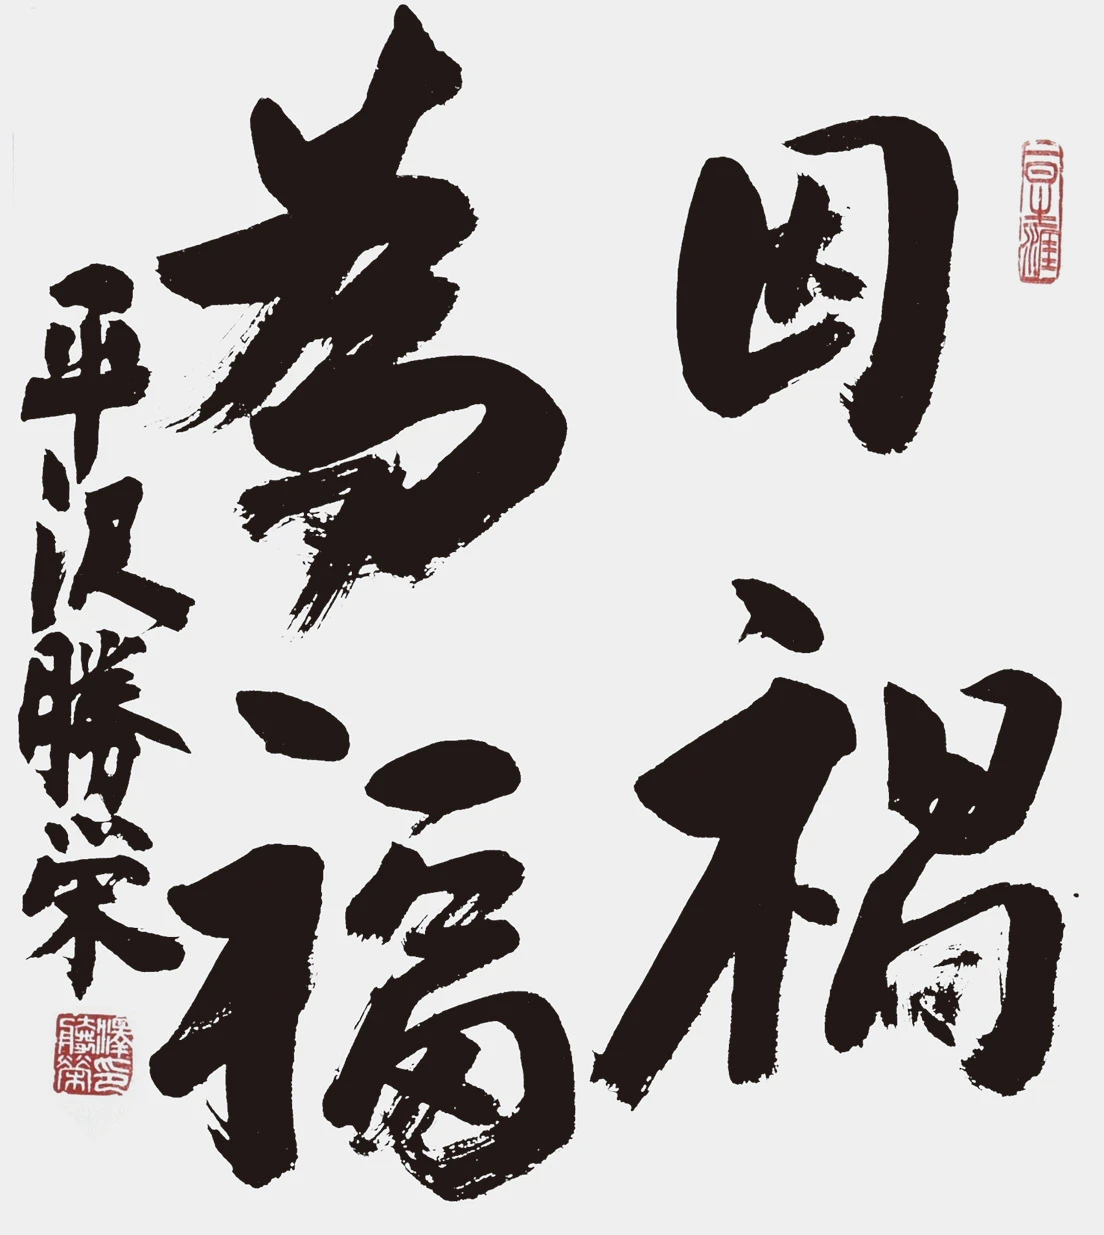 因禍
為福
平沢勝栄